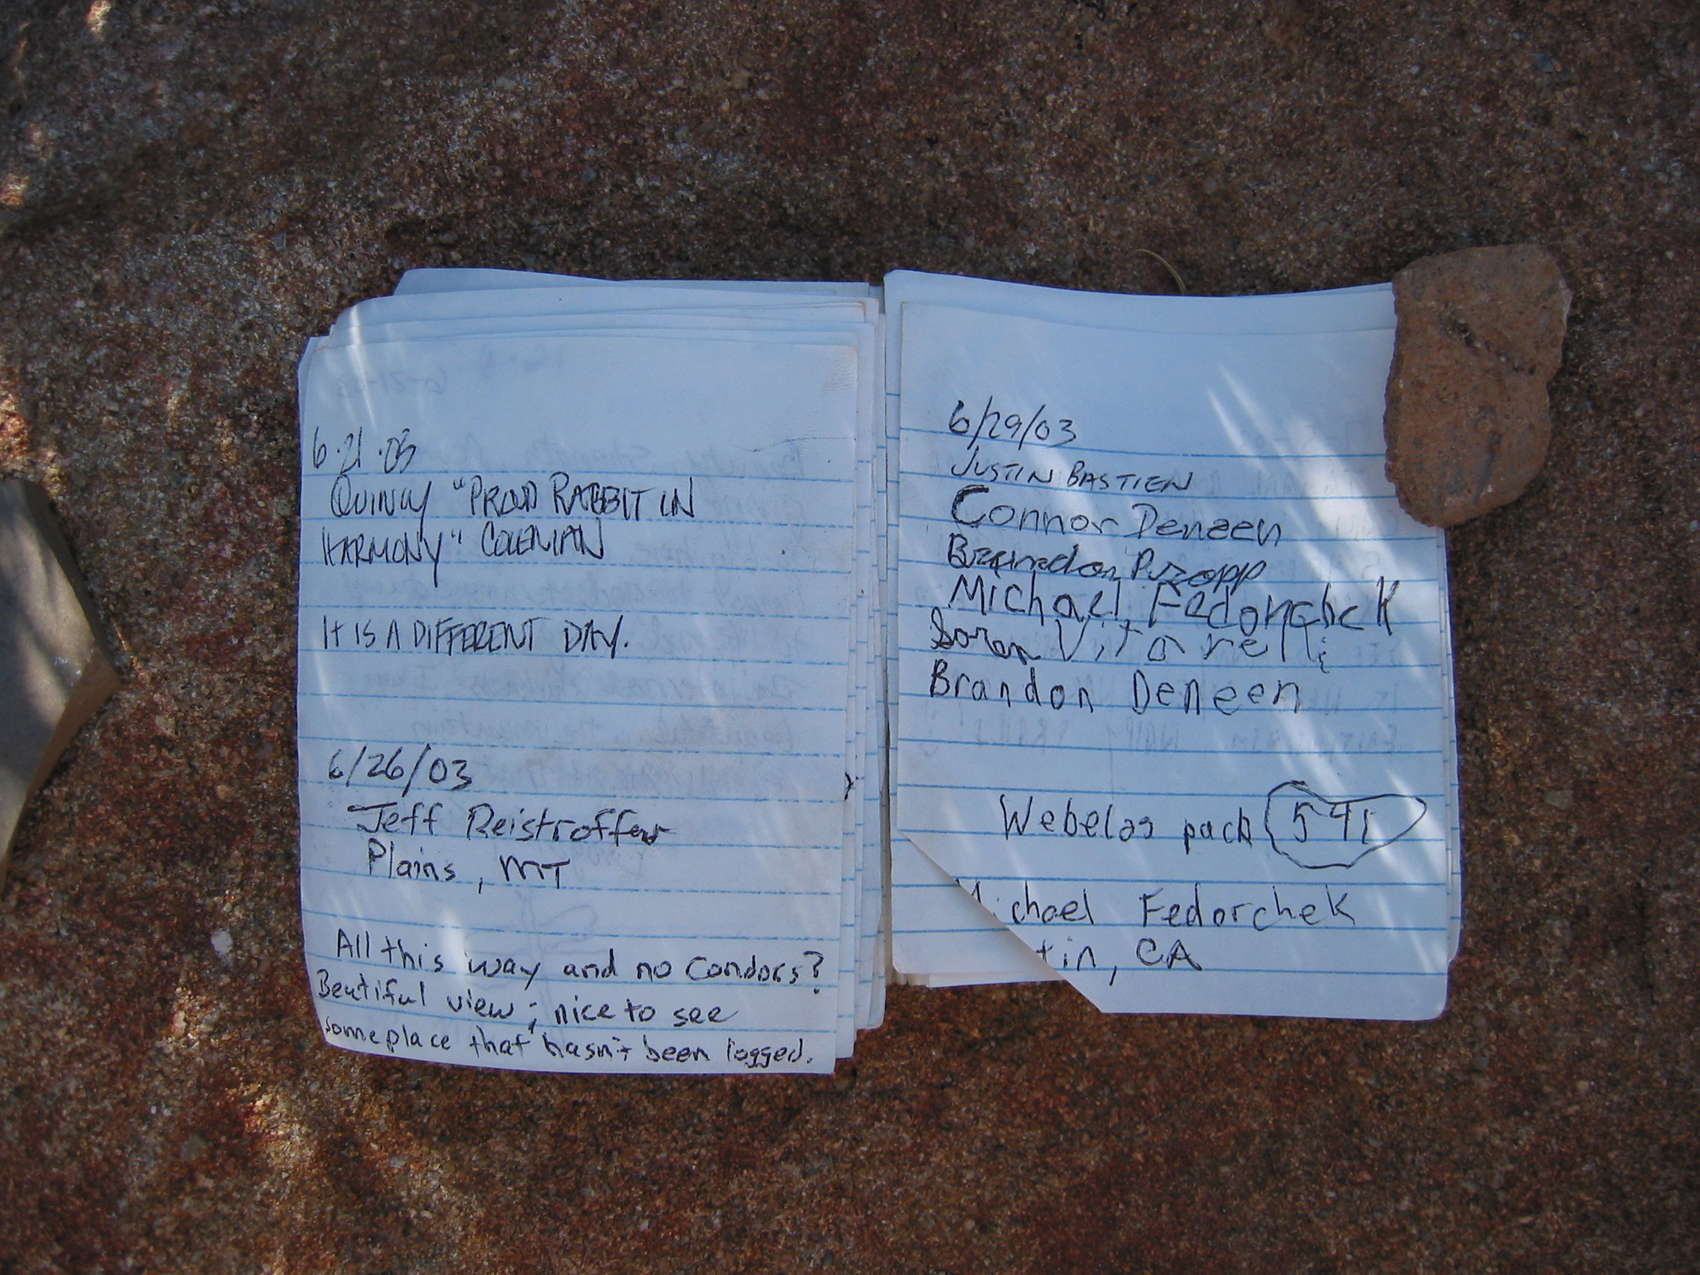 6.21.03
Quincy "PROUD RABBIT IN
HARMONY" COLEMAN
IT IS A DIFFERENT DAY.
6/26/03
Jeff Reistroffer
Plains, MT
All this way and no Condors?
Beautiful view; nice to see
someplace that hasn't been logged.
6/29/03
JUSTIN BASTIEN
Connor Deneen
Brandon Propp
Michael Fedorchek
Soren Vitorelli
Brandon Deneen
Webelos pack 541
Michael Fedorchek
tin, CA